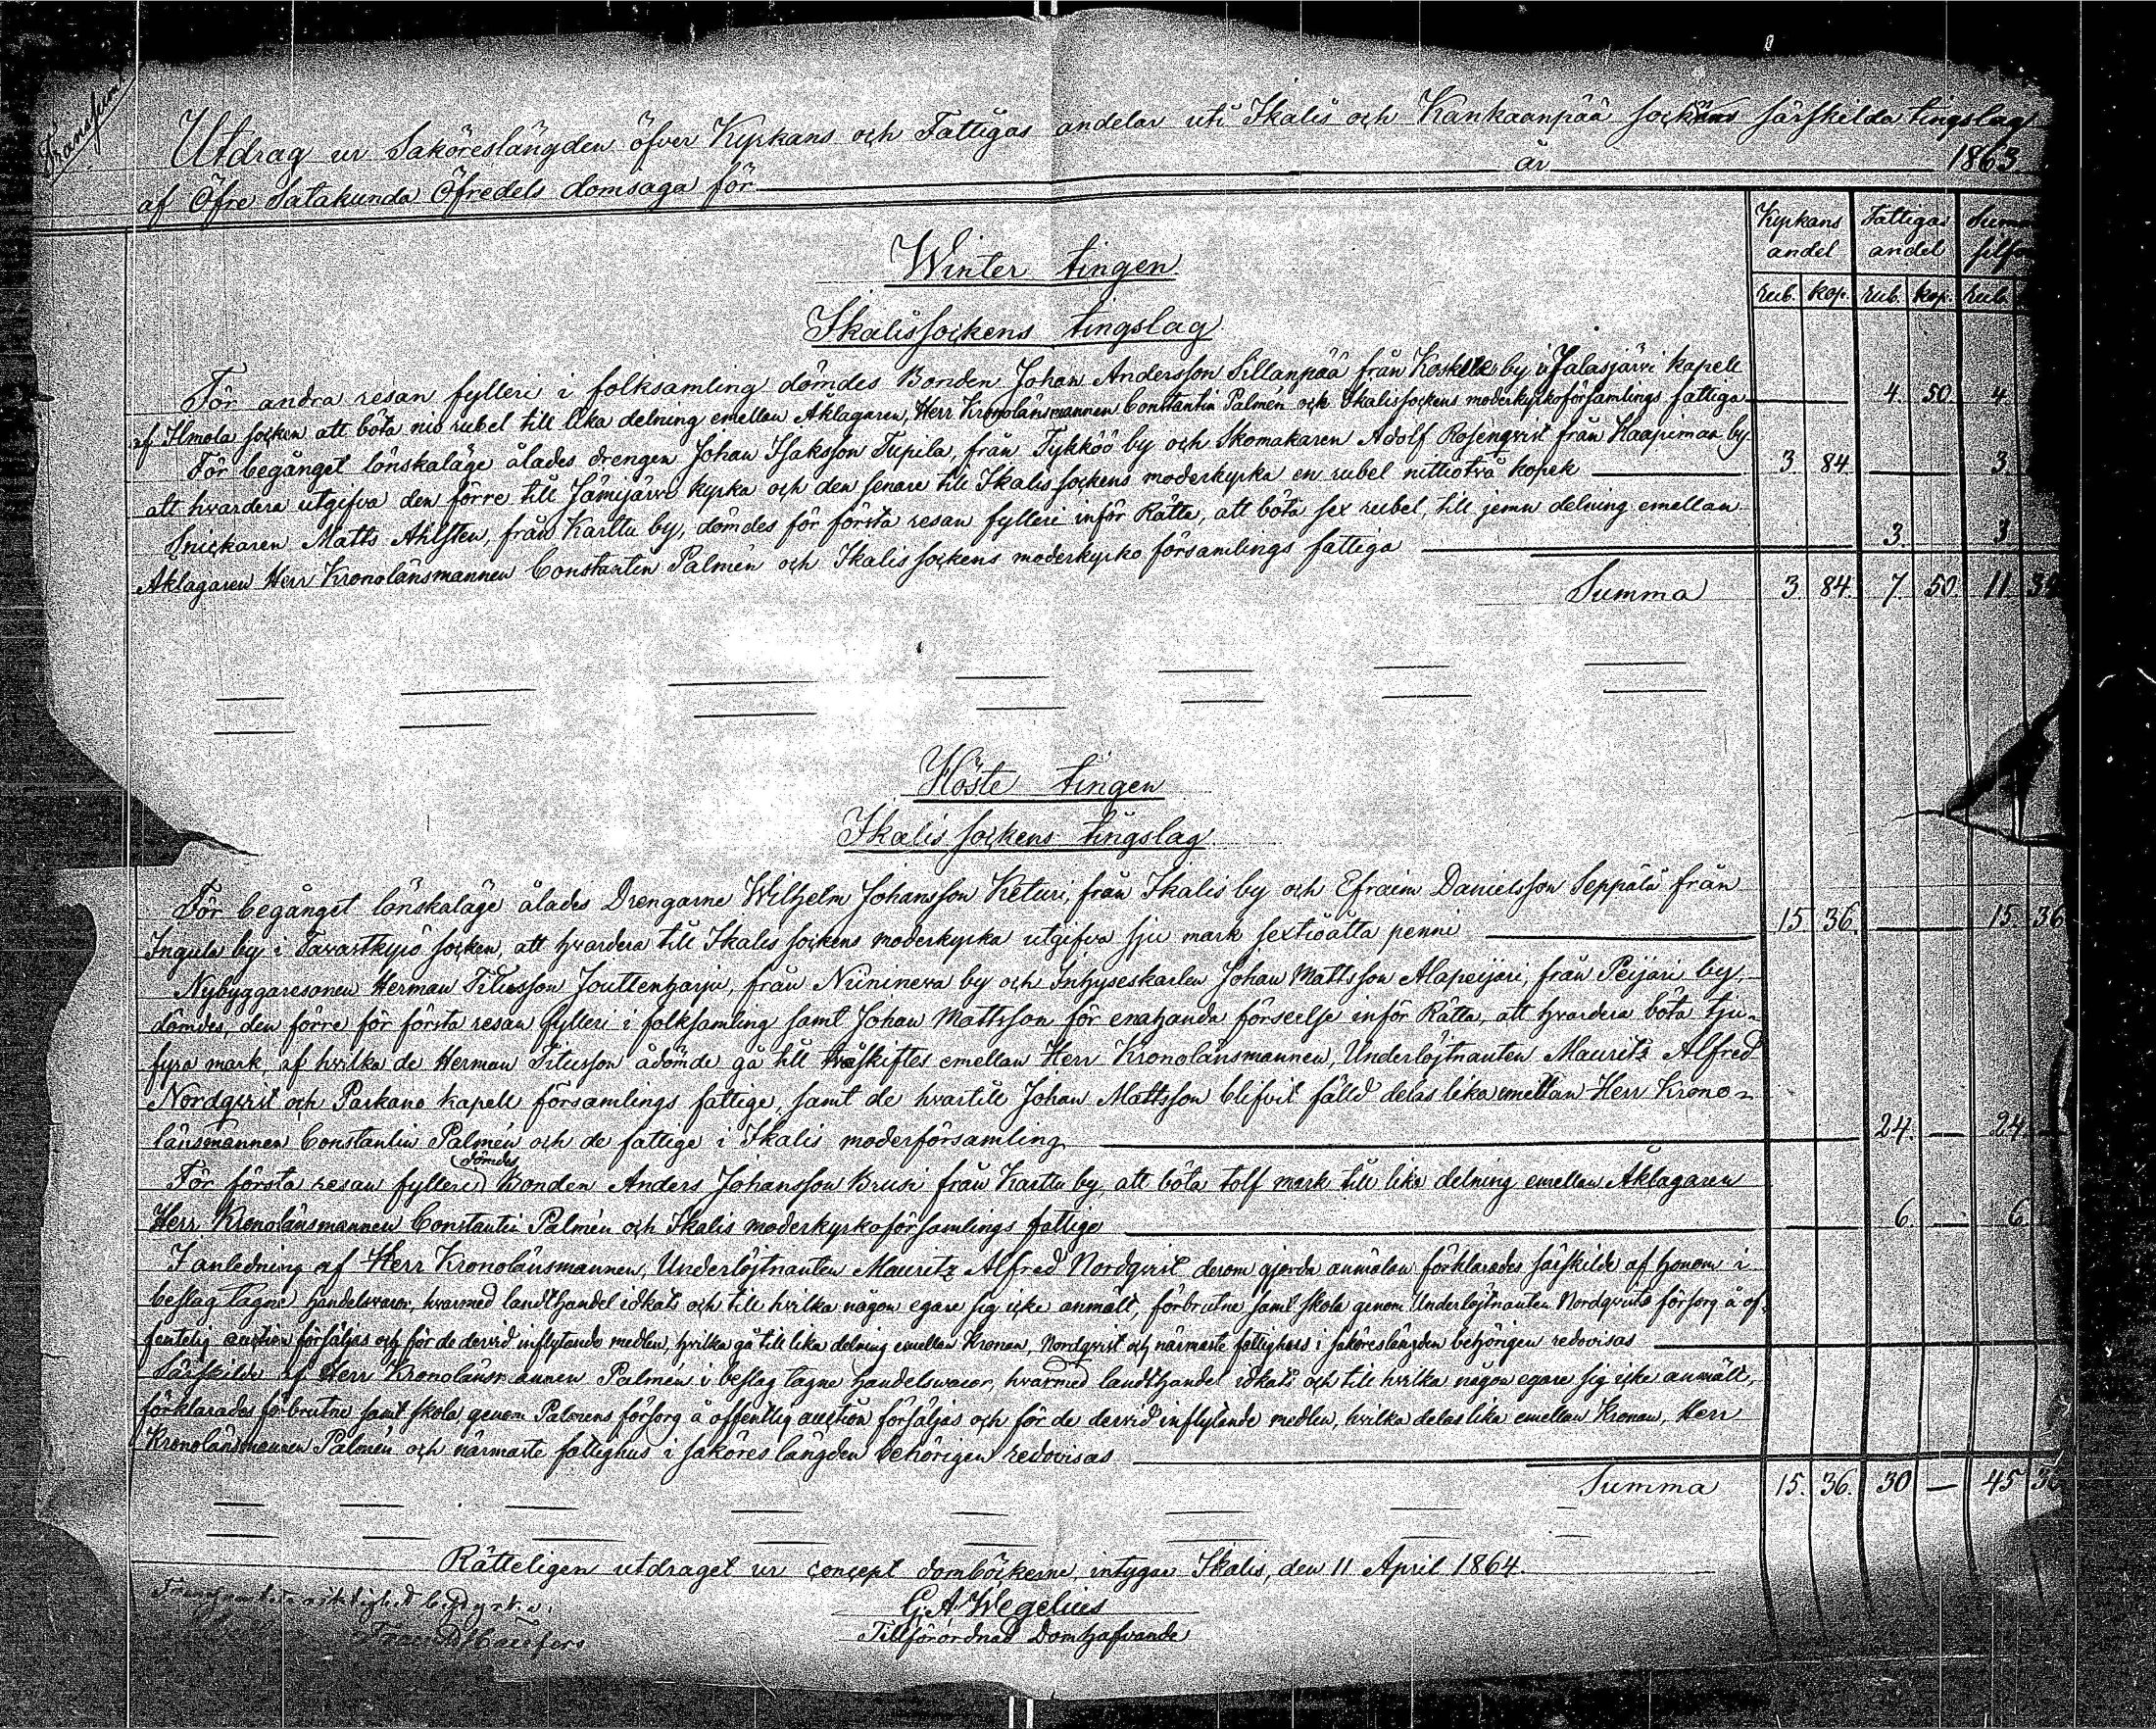 Transsumt
Utdrag ur Saköreslängden öfver Kyrkans och Fattigas andelar uti Ikalis och Kankaanpää sockens särskilda tingslag
af Öfre Satakunda Öfredels domsaga för år 1863.
Kyrkans andel Fattigas andel Summa silfver
rub. kop. rub. kop. rub.
Winter tingen
Ikalis sockens tingslag
För andra resan fylleri i folksamling dömdes Bonden Johan Andersson Sillanpää från Koskelbyi Jalasjärvi kapell
af Ilmola socken att böta nio rubel till lika delning emellan Åklagaren, Herr Kronolänsmannen Constantin Palmén och Ikalis sockens moderkyrkoförsamlings fattiga 4. 50 4.
För begånget lönskaläge ålades drengen Johan Isaksson Tupila, från Tykköö by och Skomakaren Adolf Rosenqvist från Haapimaa by
att hvardera utgifva den förre till Jämijärvi kyrka och den senare till Ikalis sockens moderkyrka en rubel nittiotvå kopek 3 84 3
Snickaren Matts Ahlsten, från Karttu by, dömdes för första resan fylleri inför Rätta, att böta sex rubel, till jemn delning emellan
Åklagaren Herr Kronolänsmannen Constantin Palmén och Ikalis sockens moderkyrko församlings fattiga 3. 3
Summa 3. 84. 7. 50 11 34
Höste tingen
Ikalis sockens tingslag
För begånget lönskaläge ålades Drengarne Wilhelm Johansson Keturi, från Ikalis by och Efraim Danielsson Seppälä från
Ingula by i Tavastkyrö socken, att hvardera till Ikalis sockens moderkyrka utgifva sju mark sextioåtta penni 15 36. 15 36
Nybyggaresonen Herman Titusson Jouttenharju, från Niinineva by och Inhyseskarlen Johan Mattsson Alapeijari, från Peijari by,
dömdes, den förre för första resan fylleri i folksamling samt Johan Mattsson för enahanda förseelse inför Rätta, att hvardera böta tju-
fyra mark, af hvilka de Herman Titusson ådömde gå till tvåskiftes emellan Herr Kronolänsmannen, Underlöjtnanten Mauritz Alfred
Nordqvist och Parkano kapell församlings fattige, samt de hvartill Johan Mattsson blifvit fälld delas lika emellan Herr Krono-
länsmannen Constantin Palmén och de fattige i Ikalis moderförsamling 24. — 24 —
För första resan fylleri dömdes Bonden Anders Johansson Brusi från Karttu by, att böta tolf mark till lika delning emellan Åklagaren
Herr Kronolänsmannen Constantin Palmén och Ikalis moderkyrkoförsamlings fattige 6 — 6
I anledning af Herr Kronolänsmannen, Underlöjtnanten Mauritz Alfred Nordqvist derom gjorda anmälan förklarades särskilde af honom i
beslag tagne handelsvaror, hvarmed landthandel idkats och till hvilka någon egare sig icke anmält, förbrutne samt skola genom Underlöjtnanten Nordqvists försorg å of-
fentelig auction försäljas och för de dervid inflytande medlen, hvilka gå till lika delning emellan Kronan, Nordqvist och närmaste fattighus i saköreslängden behörigen redovisas
Särskilde af Herr Kronolänsmannen Palmén i beslag tagne handelswaror, hvarmed landthandel idkats och till hvilka någon egare sig icke anmält,
förklarades förbrutne samt skola genom Palméns försorg å offentlig auction försäljas och för de dervid inflytande medlen, hvilka delas lika emellan Kronan, Herr
Kronolänsmannen Palmén och närmaste fattighus i saköres längden behörigen redovisas
Summa 15. 36. 30 — 45 36
Rätteligen utdraget ur concept domböckerne, intygar Ikalis, den 11 April 1864.
G. A. Wegelius
Tillförordnad Domhafvande
Transsumtets riktighet betygar: